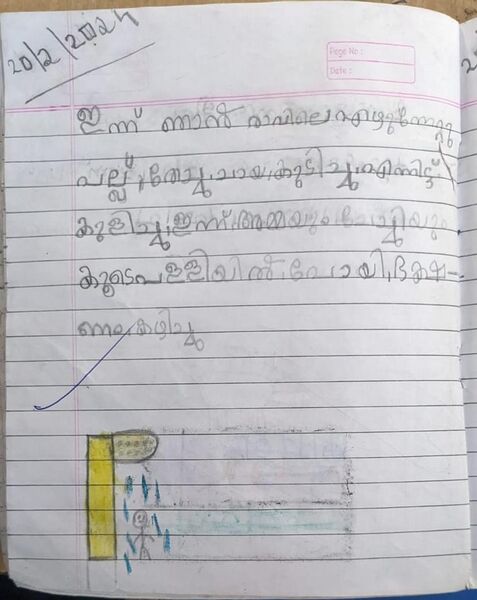 20/2/2024
Page No :
Date :
ഇന്ന് ഞാൻ രാവിലെ എഴുന്നേറ്റു
പല്ല് തേച്ചു ചായ കുടിച്ചു എന്നിട്ട്
കുളിച്ചു ഇന്ന് അമ്മയും ചേച്ചിയും
കൂടെ പള്ളിയിൽ പോയി ഭക്ഷ-
ണം കഴിച്ചു